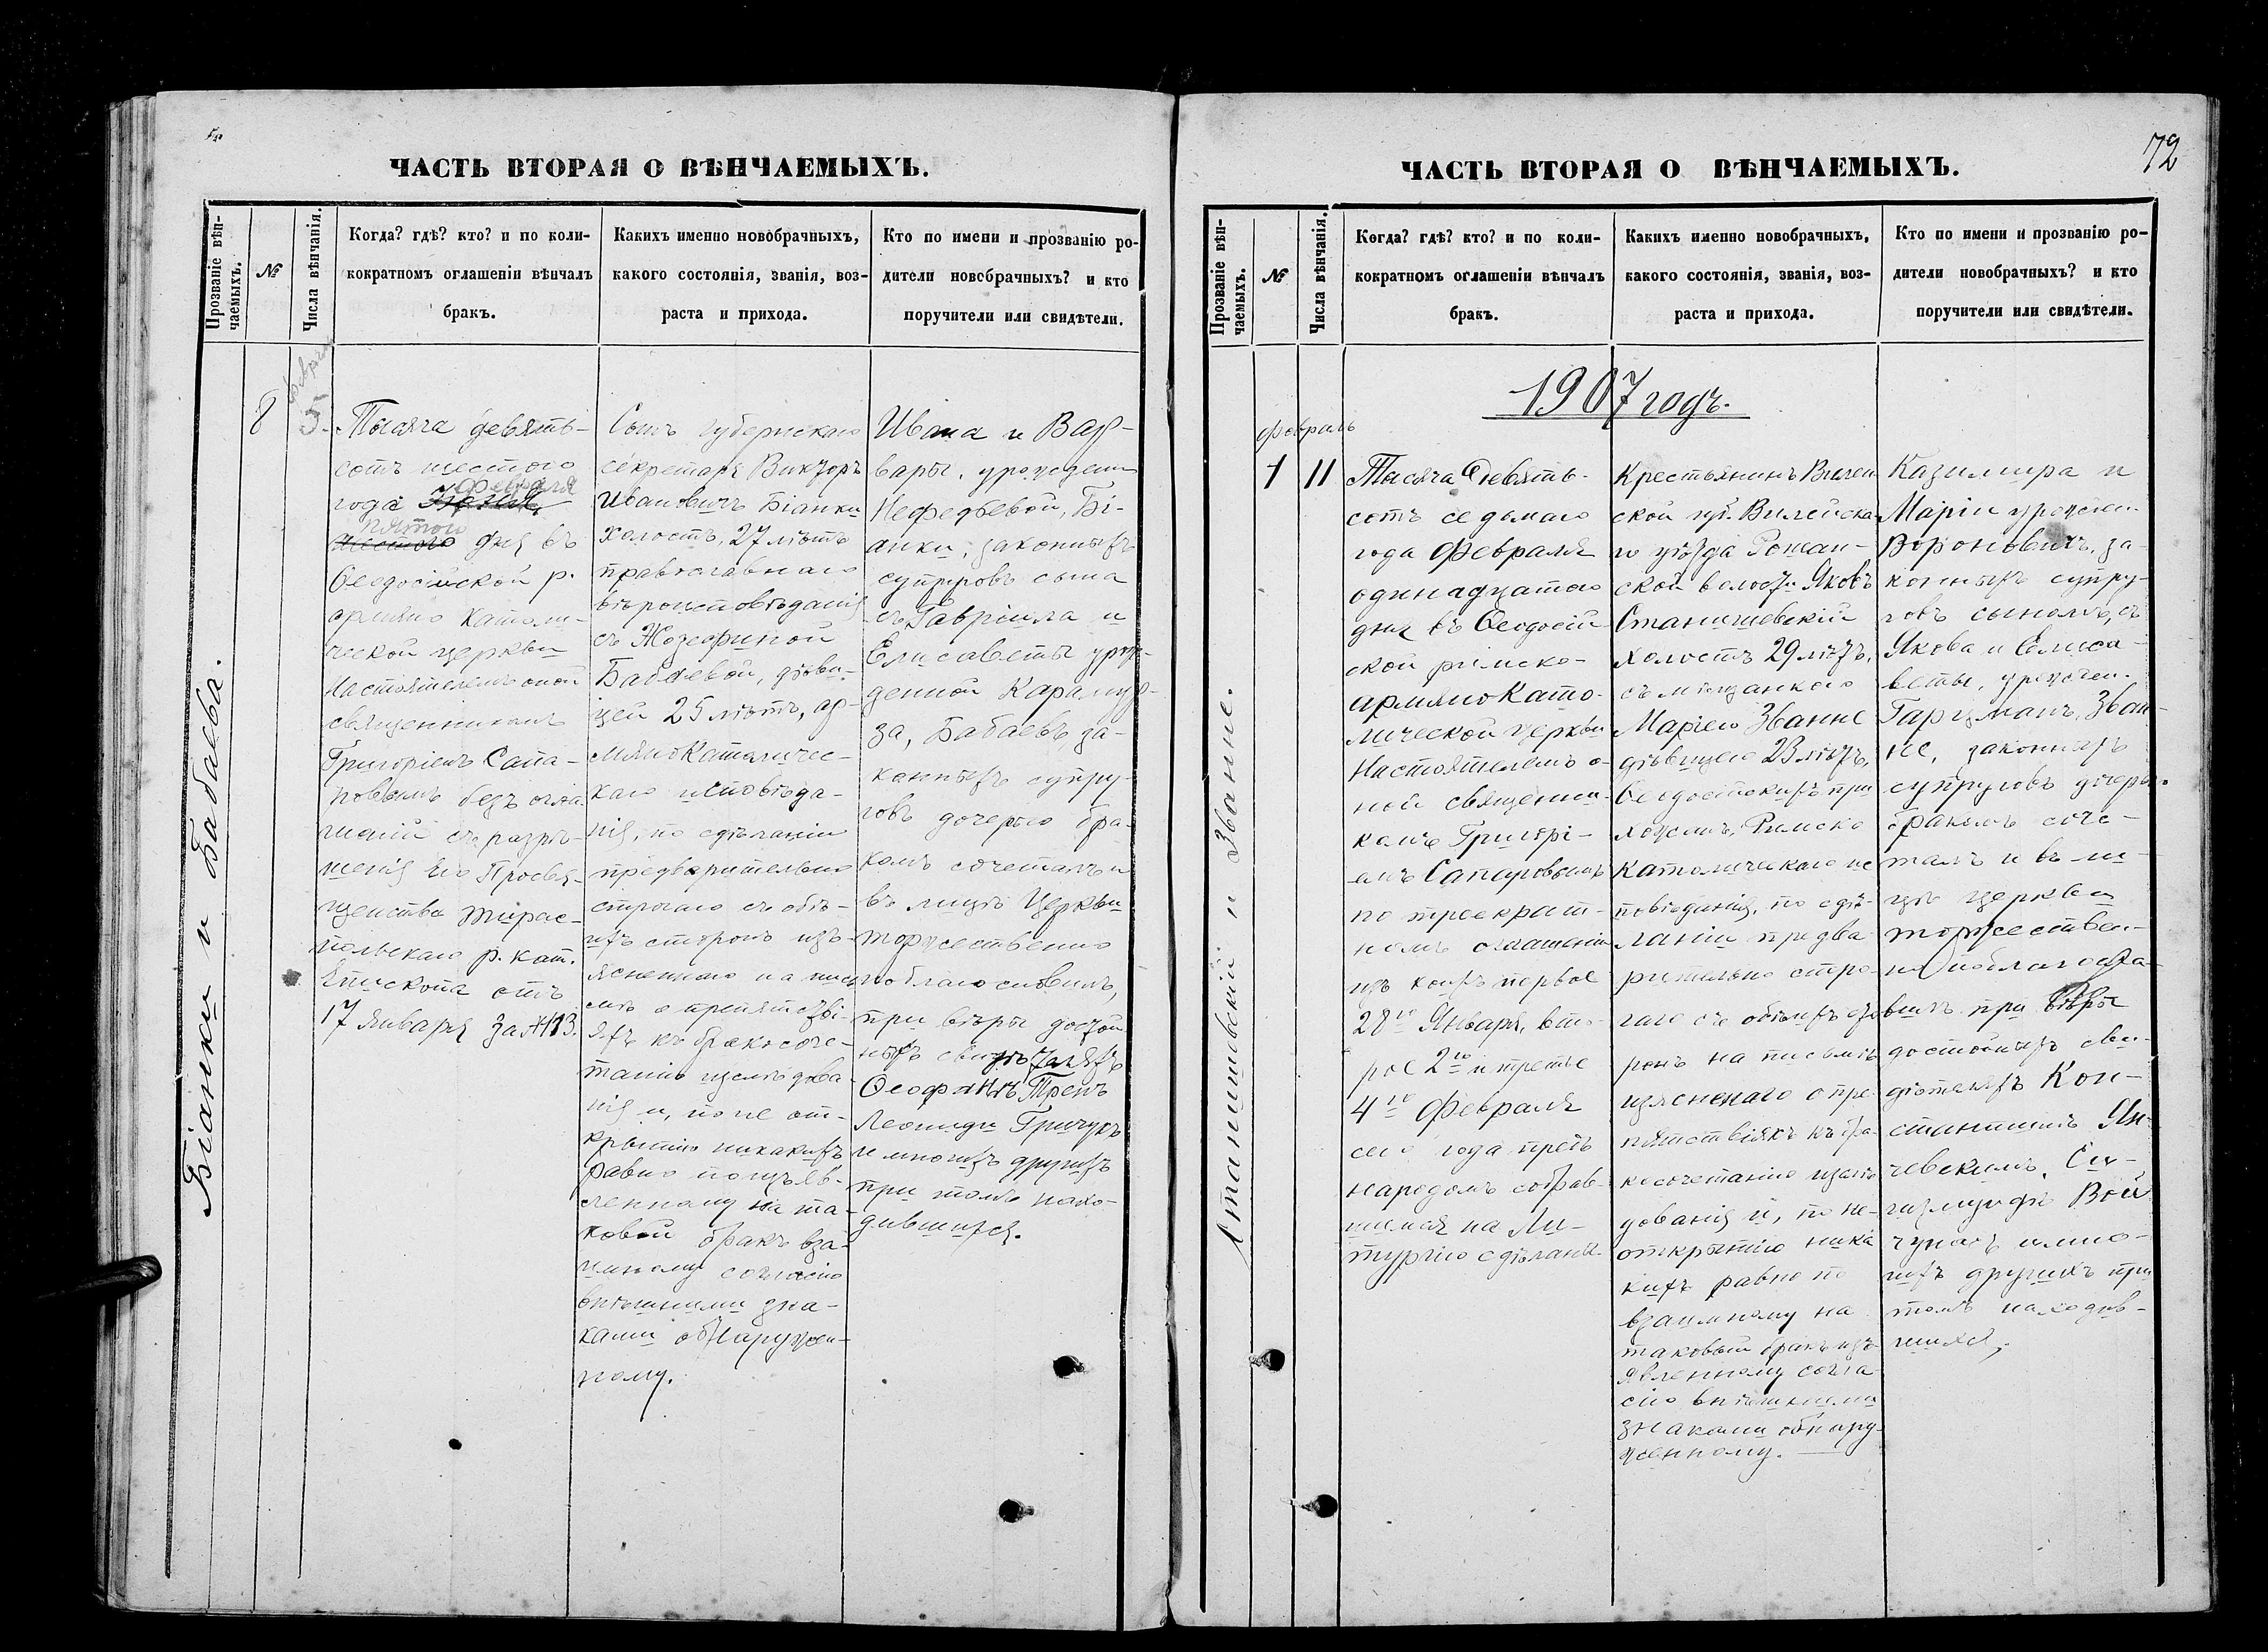 ЧАСТЬ ВТОРАЯ О ВѢНЧАЕМЫХЪ.
Прозваніе вѣн-
чаемыхъ.
№
Числа вѣнчанія.
Когда? гдѣ? кто? и по коли-
кократномъ оглашеніи вѣнчалъ
бракъ.
Какихъ именно новобрачныхъ,
какого состоянія, званія, воз-
раста и прихода.
Кто по имени и прозванію ро-
дители новобрачныхъ? и кто
поручители или свидѣтели.
Біанки и Бабаева.
8
5.
Тысяча девять-
сотъ шестого
февраля
года
пятого
шестого дня въ
Ѳеодосійской р.
армяно Католи-
ческой церкви
Настоятелемъ оной
священникомъ
Григоріемъ Сапа-
ровымъ безъ огла-
шеній съ разрѣ-
шенія Его Преосвя-
щенства Тирас-
польскаго р. кат.
Епископа отъ
17 января за №113.
Сынъ губернскаго
секретаря Викторъ
Ивановичъ Біанки
холостъ, 27 лѣтъ
православнаго
вѣроисповѣданія
съ Жозефиной
Бабаевой, дѣви-
цей 25 лѣтъ, ар-
мяноКатоличес-
каго исповѣда-
нія, по сдѣланіи
предварительно
строгаго съ обѣ-
ихъ сторонъ изъ-
ясненнаго на пись
мѣ о препятстві-
яхъ къ бракосоче-
танію изслѣдова-
нія и, по не от-
крытію никакихъ
равно по изъяв-
ленному на та-
ковой бракъ вза-
имному согласію
внѣшними зна-
ками обнаружен-
ному.
Ивана и Вар-
вары, урожденн
Нефедьевой, Бі-
анки, законныхъ
супруговъ сына
съ Гавріила и
Елисаветы урож-
денной Карамур-
за, Бабаевъ, за-
конныхъ супру-
говъ дочерью бра-
комъ сочеталъ и
въ лицѣ Церкви
торжественно
поблагословилъ,
при вѣры достой
ныхъ свидѣтеляхъ
Ѳеофанъ Тренъ
Леонидъ Гричукъ
и многихъ другихъ
при томъ нахо-
дившихся.
72
ЧАСТЬ ВТОРАЯ О ВѢНЧАЕМЫХЪ.
Прозваніе вѣн-
чаемыхъ.
№
Числа вѣнчанія.
Когда? гдѣ? кто? и по коли-
кократномъ оглашеніи вѣнчалъ
бракъ.
Какихъ именно новобрачныхъ,
какого состоянія, званія, воз-
раста и прихода.
Кто по имени и прозванію ро-
дители новобрачныхъ? и кто
поручители или свидѣтели.
1907 годъ.
Станишевскій и Званне.
февраль
1 11
Тысяча Девять-
сотъ седьмаго
года Февраля
одинадцатаго
дня въ Ѳеодосій-
ской римско-
армяноКато-
лической церкви
Настоятелемъ о-
ной священни-
комъ Григорі-
емъ Сапаровымъ
по троекрат-
номъ оглашеніи
изъ коихъ первое
28го Января, вто-
рое 2го и третье
4го Февраля
сего года предъ
народомъ собрав-
шимся на Ли-
тургію сдѣланы.
Крестьянинъ Вилен
ской губ. Вилейска-
го уѣзда
ской волости Яковъ
Станишевскій
холостъ 29 лѣтъ,
съ мѣщанкою
Маріею Званне
дѣвицею 23 лѣтъ,
Ѳеодосійскихъ при
хожанъ, Римско
Католическаго ис
повѣданія, по сдѣ-
ланіи предва
рительно стро-
гаго съ обѣихъ сто
ронъ на письмѣ
изясненаго о пре
пятствіяхъ къ бра-
косочетанію изслѣ
дованія и, по не-
открытію ника
кихъ равно по
взаимному на
таковый бракъ изъ
явленному согла-
сію внѣшними
знаками обнару-
женному.
Казимира и
Маріи урожден.
Вороновичъ, за-
конныхъ супру-
говъ сыномъ, съ
Якова и Елиса-
веты, урожден.
Гарцманъ, Зван-
не, законныхъ
супруговъ дочерью
бракомъ соче-
талъ и въ ли-
цѣ церкви
торжествен-
но поблагосло-
вилъ при вѣры
достойныхъ сви-
дѣтеляхъ Кон-
стантинъ Ян-
чевскимъ, Си-
гизмундъ Вой
и мно-
гихъ другихъ при
томъ находив-
шихся.